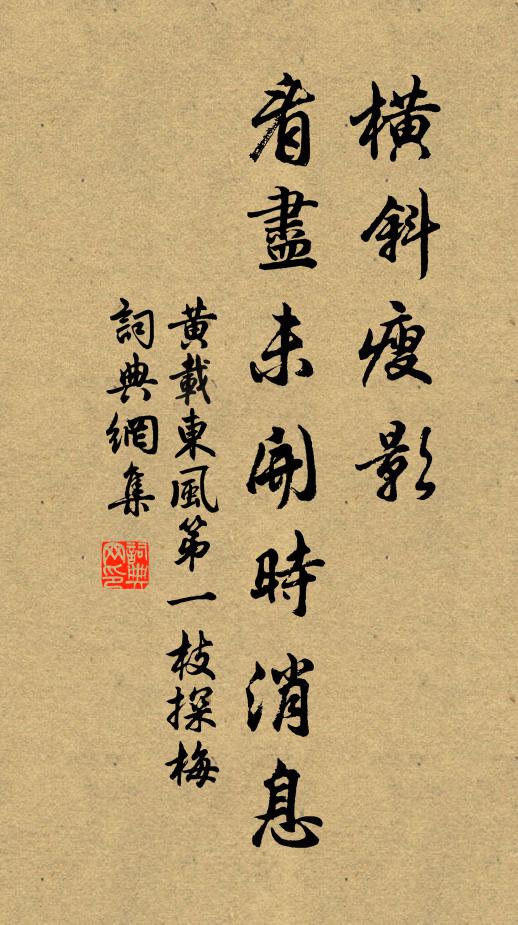 橫斜瘦影
看盡未開時消息
黃載東風第一枝探梅
詞典網集
詞典網印